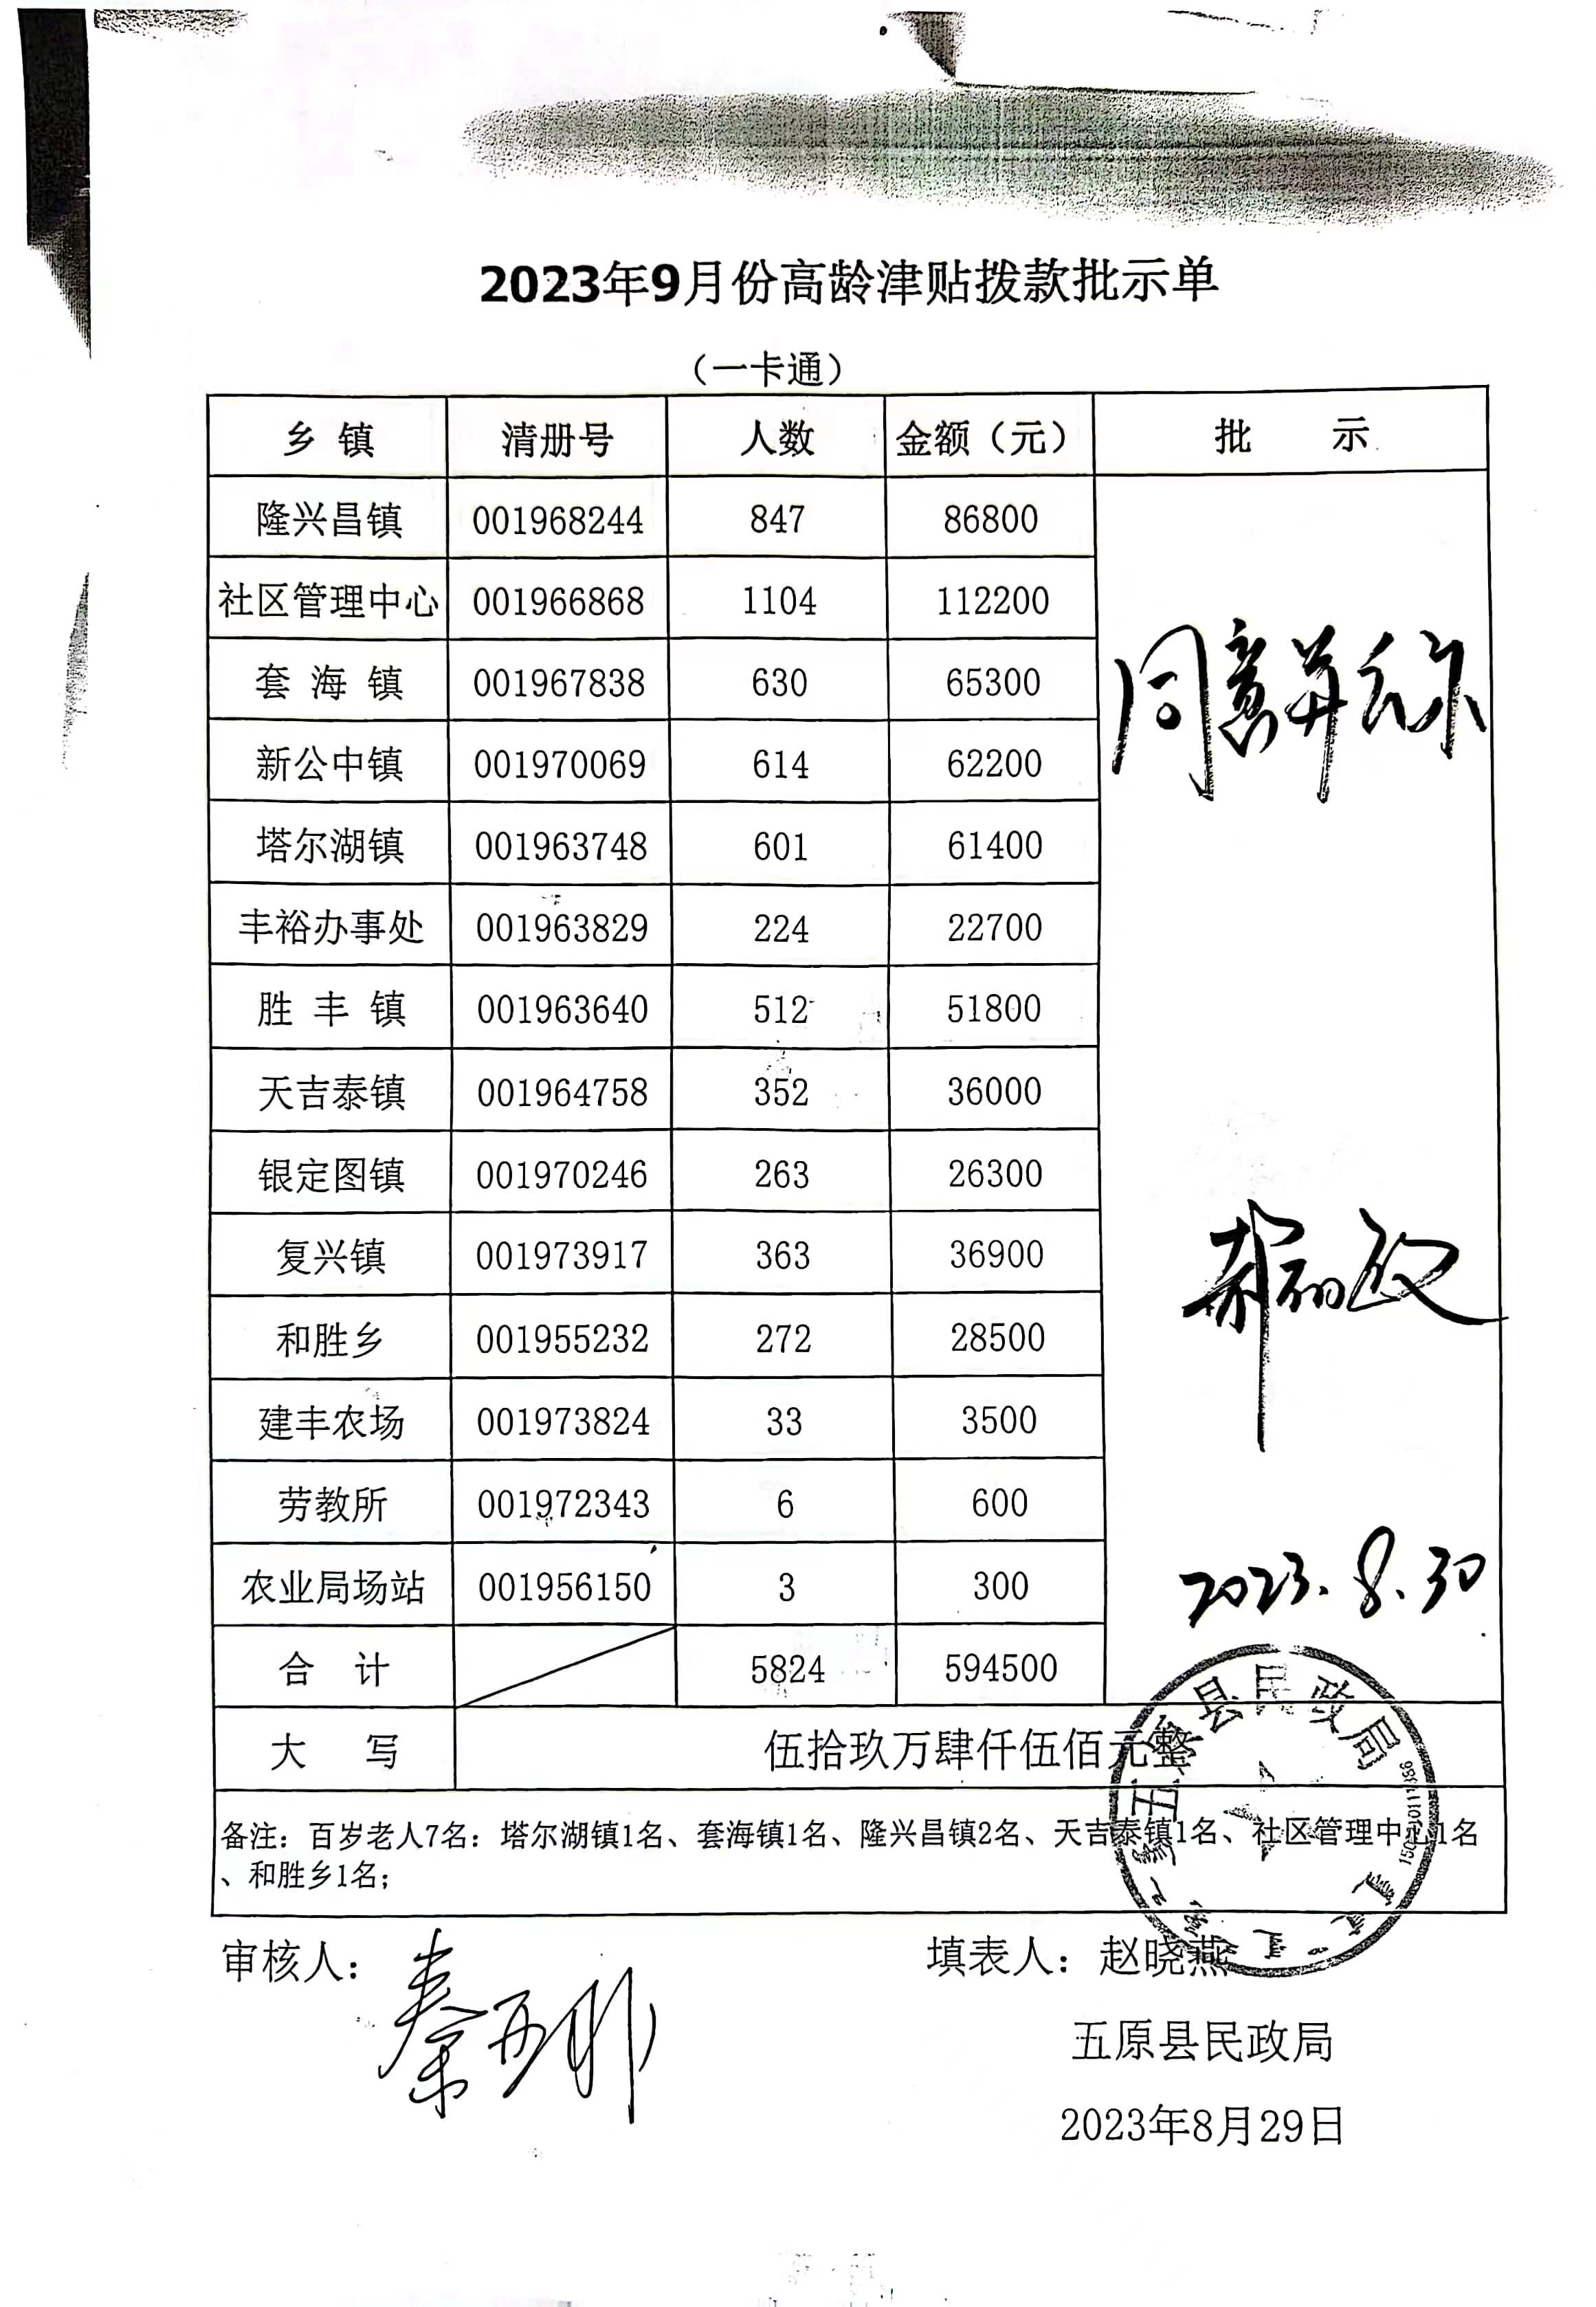 2023年9月份高龄津贴拨款批示单
（一卡通）
乡 镇 清册号 人数 金额（元） 批 示
隆兴昌镇 001968244 847 86800
社区管理中心 001966868 1104 112200
套 海 镇 001967838 630 65300
同意
新公中镇 001970069 614 62200
塔尔湖镇 001963748 601 61400
丰裕办事处 001963829 224 22700
胜 丰 镇 001963640 512 51800
天吉泰镇 001964758 352 36000
银定图镇 001970246 263 26300
复兴镇 001973917 363 36900
和胜乡 001955232 272 28500
建丰农场 001973824 33 3500
劳教所 001972343 6 600
农业局场站 001956150 3 300
2023.8.30
合 计 5824 594500
大 写 伍拾玖万肆仟伍佰元整
五原县民政局
备注：百岁老人7名：塔尔湖镇1名、套海镇1名、隆兴昌镇2名、天吉泰镇1名、社区管理中心1名
、和胜乡1名；
审核人： 填表人：赵晓燕
五原县民政局
2023年8月29日